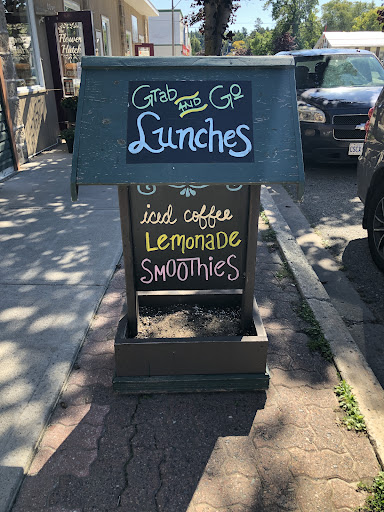 Flower
Hutch
Grab AND Go
Lunches
iced coffee
LEMONADE
SMOOTHIES